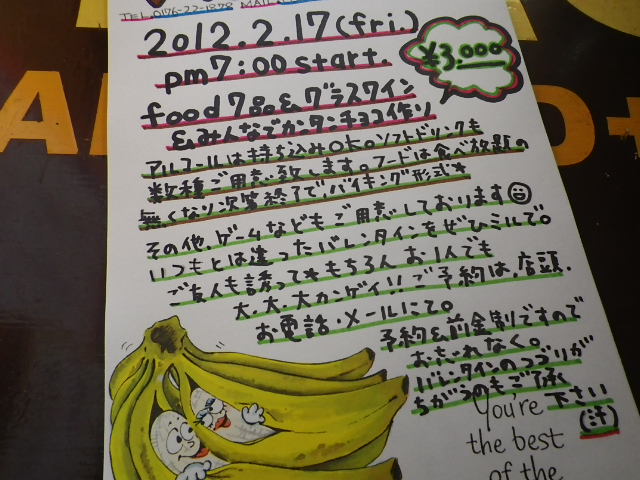 TEL.0176-22-1878
2012.2.17(fri.)
pm7:00 start.
¥3,000
food7品&グラスワイン
&みんなでカンタンチョコ作り
アルコールは持ち込みOK。ソフトドリンクも
数種ご用意致します。フードは食べ放題の
無くなり次第終了で、バイキング形式★
その他、ゲームなどもご用意しております☺
いつもとは違ったバレンタインをぜひミルで。
ご友人も誘って★もちろんお1人でも
大、大、大カンゲイ!!ご予約は、店頭、
お電話・メールにて。
予約&前金制ですので
おわすれなく。
バレンタインのつづりが
ちがうのもご了承
下さい
(汗)
You're
the best
of the